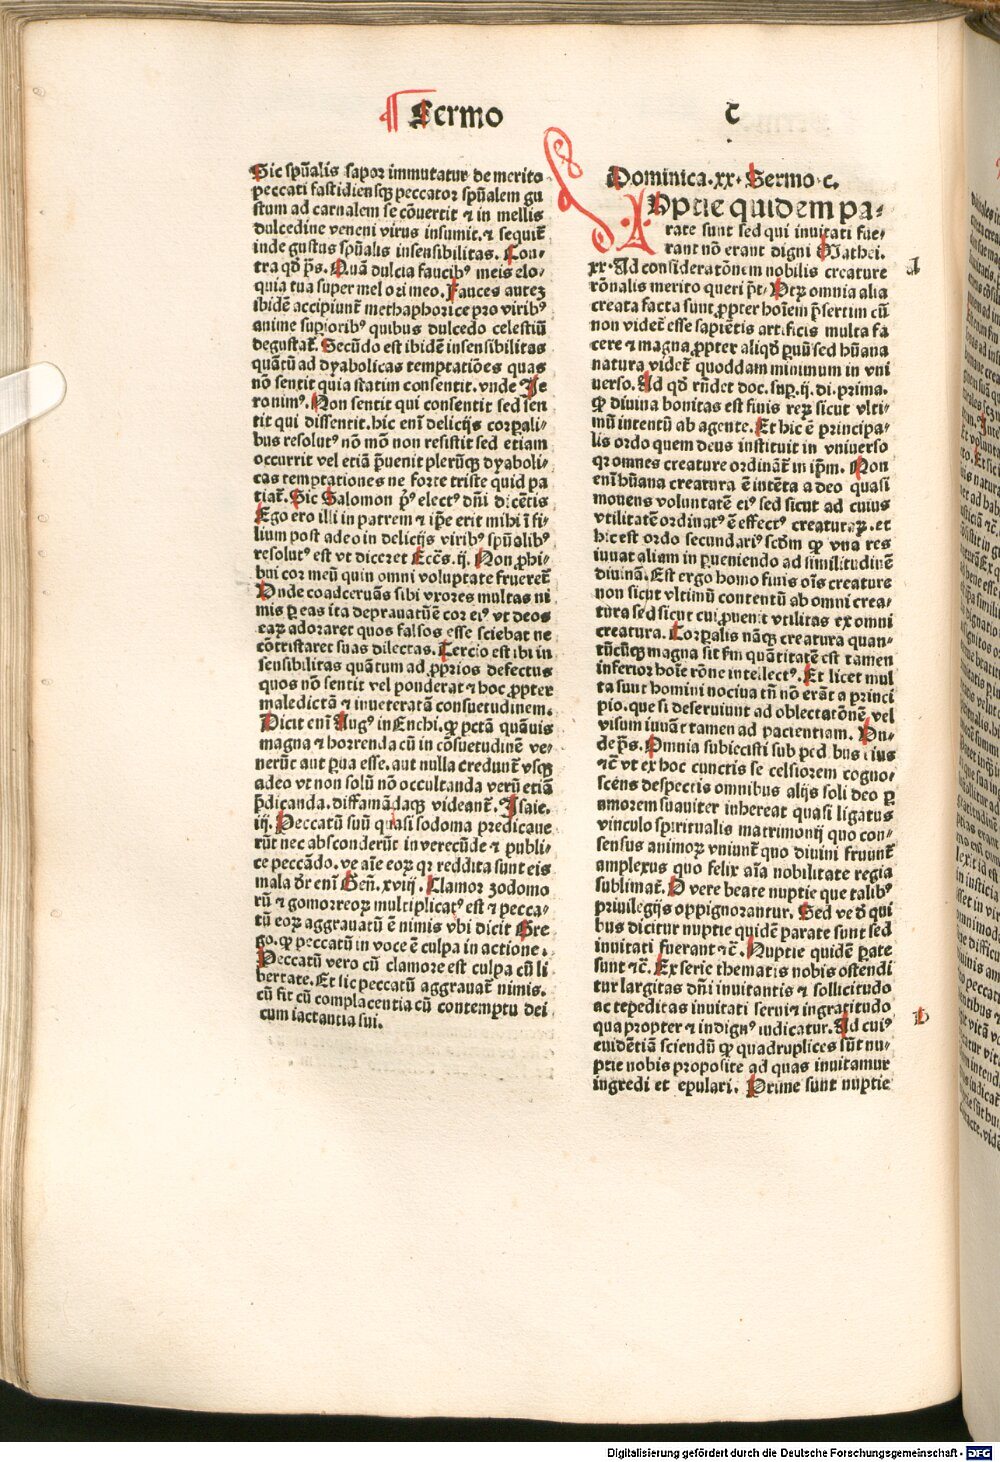 Sermo
c
Sic spūalis sapor immutatur de merito
peccati fastidiensqꝫ peccator spūalem gu
stum ad carnalem se cōuertit ⁊ in mellis
dulcedine veneni virus insumit. ⁊ sequit᷑
inde gustus spūalis insensibilitas. Con-
tra qd̄ p̄s. Quā dulcia faucibꝰ meis elo-
quia tua super mel ori meo. Fauces auteꝫ
ibidē accipiunt᷑ methaphorice pro viribꝰ
anime supioribꝰ quibus dulcedo celestiū
degustat᷑. Secūdo est ibidē insensibilitas
quātū ad dyabolicas temptatiōes quas
nō sentit quia statim consentit. vnde Je
ronimꝰ. Non sentit qui consentit sed sen
tit qui dissentit. hic enī delicijs corpali-
bus resolutꝰ nō mō non resistit sed etiam
occurrit vel etiā p̄uenit plerūqꝫ dyaboli-
cas temptationes ne forte triste quid pa
tiat᷑. Sic Salomon pꝰ electꝰ dn̄i dicētis
Ego ero illi in patrem ⁊ ip̄e erit mihi ī fi-
lium post adeo in delicijs viribꝰ spūalibꝰ
resolutꝰ est vt diceret Ecc̄s. ij. Non ꝓhi-
bui cor meū quin omni voluptate frueret᷑
Vnde coadceruās sibi vxores multas ni
mis ꝑ eas ita deprauatū ē cor eiꝰ vt deos
eaꝝ adoraret quos falsos esse sciebat ne
cōtristaret suas dilectas. Tercio est ibi in
sensibilitas quātum ad ꝓprios defectus
quos nō sentit vel ponderat ⁊ hoc ꝓpter
maledictā ⁊ inueteratā consuetudinem.
Dicit enī Augꝰ in Enchi. ꝙ pctā quāuis
magna ⁊ horrenda cū in cōsuetudinē ve-
nerūt aut ꝑua esse. aut nulla credunt᷑ vsqꝫ
adeo vt non solū nō occultanda verū etiā
p̄dicanda. diffamādaqꝫ videant᷑. Isaie.
iij. Peccatū suū quasi sodoma predicaue
rūt nec absconderūt in verecūde ⁊ publi-
ce peccādo. ve aīe eoꝝ qr reddita sunt eis
mala dr̄ enī Gen̄. xviij. Clamor zodomo
rū ⁊ gomorreoꝝ multiplicatꝰ est ⁊ pecca-
tū eoꝝ aggrauatū ē nimis vbi dicit Gre
go. ꝙ peccatū in voce ē culpa in actione.
Peccatū vero cū clamore est culpa cū li
bertate. Et sic peccatū aggrauat᷑ nimis.
cū fit cū complacentia cū contemptu dei
cum iactantia sui.
Dominica. xx. Sermo. c.
Nuptie quidem pa-
rate sunt sed qui inuitati fue-
rant nō erant digni Mathei.
xx. Ad consideratōnem nobilis creature
rōnalis merito queri pt̄. Vtꝝ omnia alia
creata facta sunt ꝓpter hoīem p̄sertim cū
non videt᷑ esse sapiētis artificis multa fa
cere ⁊ magna ꝓpter aliqd̄ ꝑuū sed hūana
natura videt᷑ quoddam minimum in vni
uerso. Ad qd̄ rn̄det doc. sup. ij. di. prima.
ꝙ diuina bonitas est finis reꝝ sicut vlti-
mū intentū ab agente. Et hic ē principa-
lis ordo quem deus instituit in vniuerso
qꝛ omnes creature ordināt᷑ in ip̄m. Non
enī hūana creatura ē intēta a deo quasi
mouens voluntatē eiꝰ sed sicut ad cuius
vtilitatē ordinatꝰ ē effectꝰ creaturaꝝ. et
hic est ordo secundariꝰ scdm ꝙ vna res
iuuat aliam in ꝑueniendo ad similitudinē
diuinā. Est ergo homo finis oīs creature
non sicut vltimū contentū ab omni crea-
tura sed sicut cui ꝓuenit vtilitas ex omni
creatura. Corꝑalis nāqꝫ creatura quan-
tūcūqꝫ magna sit fm quātitatē est tamen
inferior hoīe rōne intellectꝰ. Et licet mul
ta sunt homini nociua tn̄ nō erāt a princi
pio. que si deseruiunt ad oblectatōnē vel
visum iuuāt tamen ad pacientiam. Vn-
de p̄s. Omnia subiecisti sub pedibus eius
⁊c̄ vt ex hoc cunctis se celsiorem cogno-
scēns despectis omnibus alijs soli deo ꝑ
amorem suauiter inhereat quasi ligatus
vinculo spiritualis matrimonij quo con-
sensus animoꝝ vniunt᷑ quo diuini fruunt᷑
amplexus quo felix aīa nobilitate regia
sublimat᷑. O vere beate nuptie que talibꝰ
priuilegijs oppignorantur. Sed ve de qui
bus dicitur nuptie quidē parate sunt sed
inuitati fuerant ⁊c̄. Nuptie quidē ꝑate
sunt ⁊c̄. Ex serie thematis nobis ostendi
tur largitas dn̄i inuitantis ⁊ sollicitudo
ac tepeditas inuitati serui ⁊ ingratitudo
qua propter ⁊ indignꝰ iudicatur. Ad cuiꝰ
euidētiā sciendū ꝙ quadruplices sūt nu-
ptie nobis proposite ad quas inuitamur
ingredi et epulari. Prime sunt nuptie
A
B
Digitalisierung gefördert durch die Deutsche Forschungsgemeinschaft - DFG